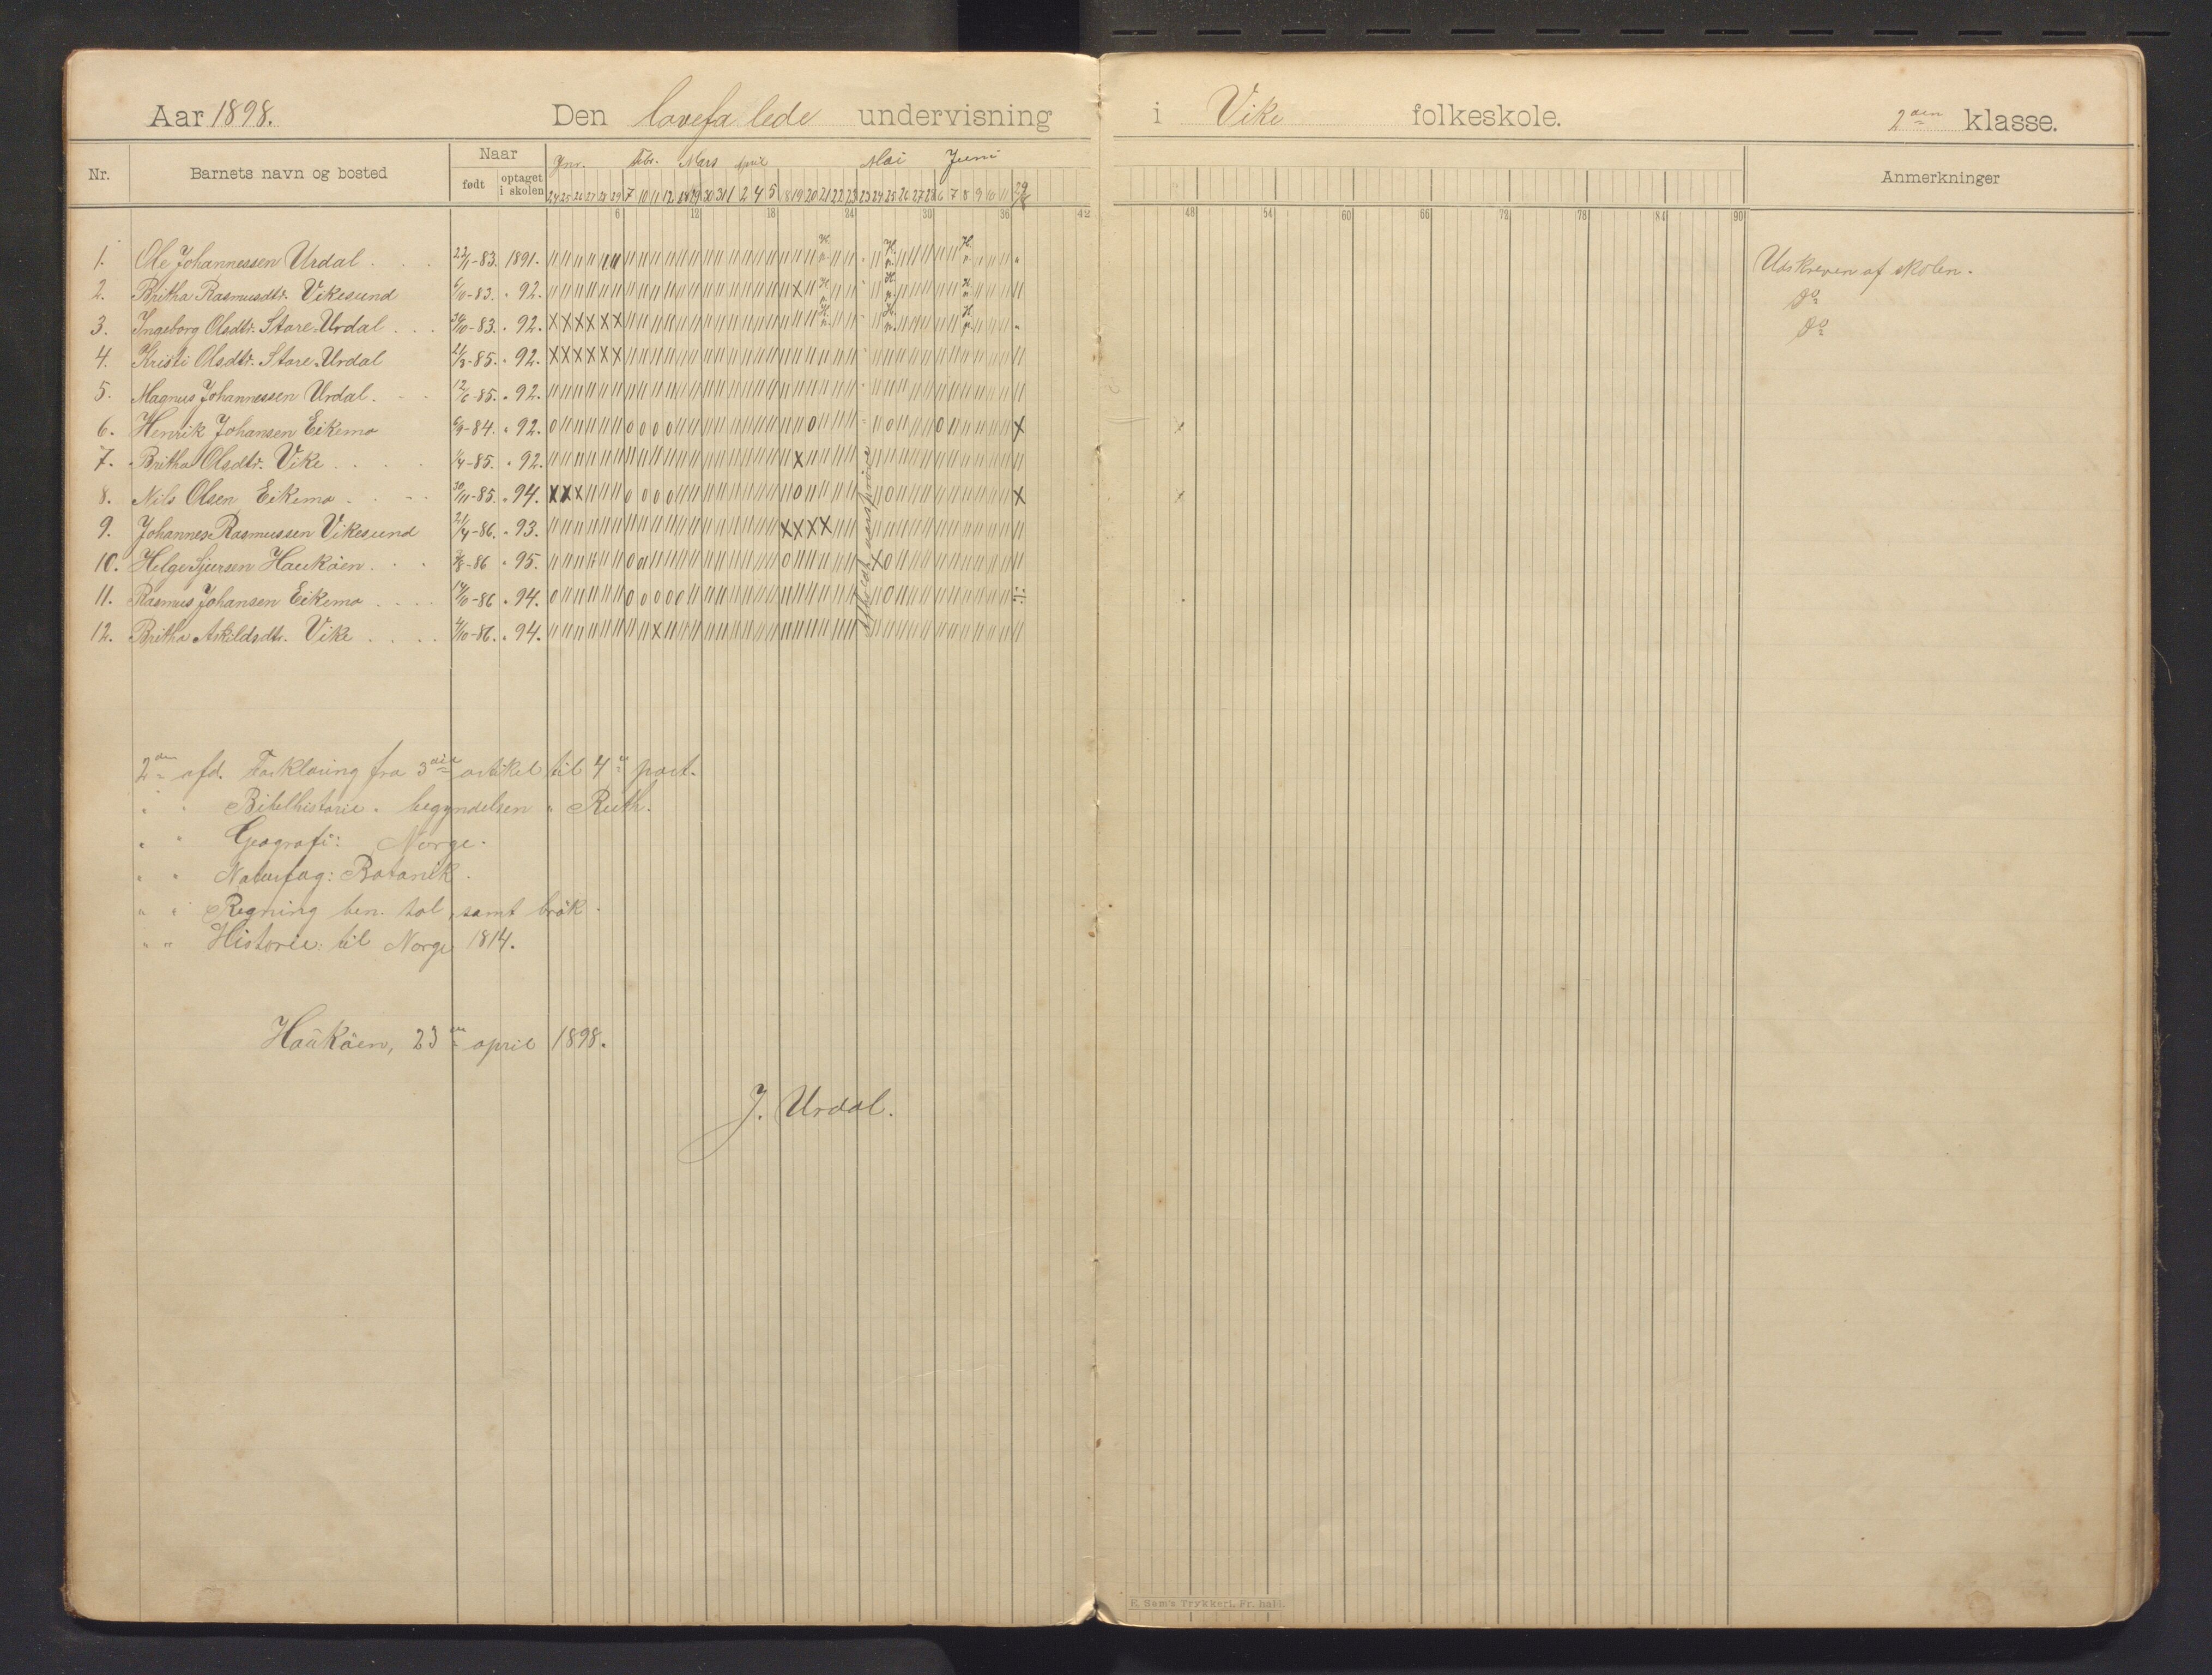 Aar 1898. Den lovefalede undervisning i Vike folkeskole. 2den klasse.
Nr. Barnets navn og bosted Naar født optaget i skolen Jnr. Febr. Mars April Mai Juni Anmerkninger
24 25 26 27 28 29 7 10 11 12 18 19 30 31 1 2 4 5 18 19 20 21 22 23 23 24 25 26 27 28 6 7 8 9 10 11 29/6
6 12 18 24 30 36 42 48 54 60 66 72 78 84 90
1. Ole Johannessen Urdal . . . 22/1-83. 1891. Udskreven af skolen.
2. Britha Rasmusdtr. Vikesund 6/10-83. " 92. Do
3. Ingeborg Olsdtr. Store-Urdal . . . 30/10-83. " 92. Do
4. Kristi Olsdtr. Store-Urdal 21/3-85. " 92.
5. Magnus Johannessen Urdal. - - 12/6-85. " 92.
6. Henrik Johansen Eikemo 6/9-84. " 92.
7. Britha Olsdtr. Vike . . . . . 1/4-85. " 92.
8. Nils Olsen Eikemo . . - - 30/11-85. " 94.
9. Johannes Rasmussen Vikesund 21/4-86. " 93.
10. Helge Sjursen Haukåen . . . 3/8-86 " 95.
11. Rasmus Johansen Eikemo . . . . 14/10-86 " 94.
12. Britha Askildsdtr. Vike . . . . 4/10-86. " 94.
Afholdt aarsprøve
2den afd. Forklaring fra 3die artikel til 4de part.
" " Bibelhistorie " begyndelsen " Ruth.
" " Geografi: Norge.
" " Naturfag: Botanik.
" " Regning ben. tal, samt brøk.
" " Historie: til Norge 1814.
Haukåen, 23de april 1898.
J. Urdal.
E. Sem's Trykkeri, Fr. hall.